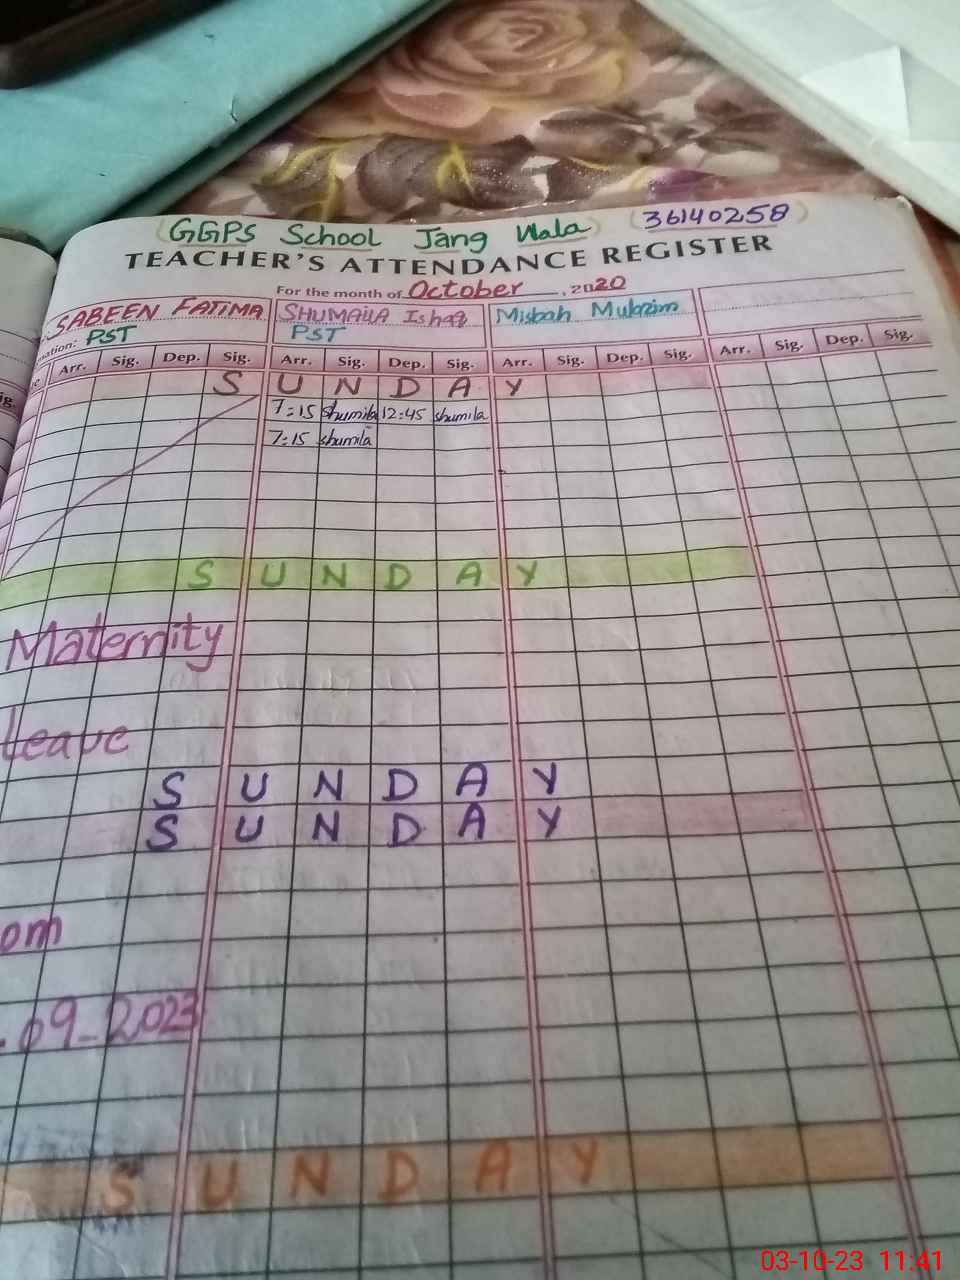 GGPS School Jang Wala (36140258)
TEACHER'S ATTENDANCE REGISTER
For the month of October, 2020
SABEEN FATIMA SHUMAILA Ishaq Misbah
nation: PST PST
Arr. Sig. Dep. Sig. Arr. Sig. Dep. Sig. Arr. Sig. Dep. Sig. Arr. Sig. Dep. Sig.
S U N D A Y
7:15 shumila 12:45 shumila
7:15 shumila
S U N D A Y
Maternity
leave
S U N D A Y
S U N D A Y
om
.09-2023
S U N D A Y
03-10-23 11:41